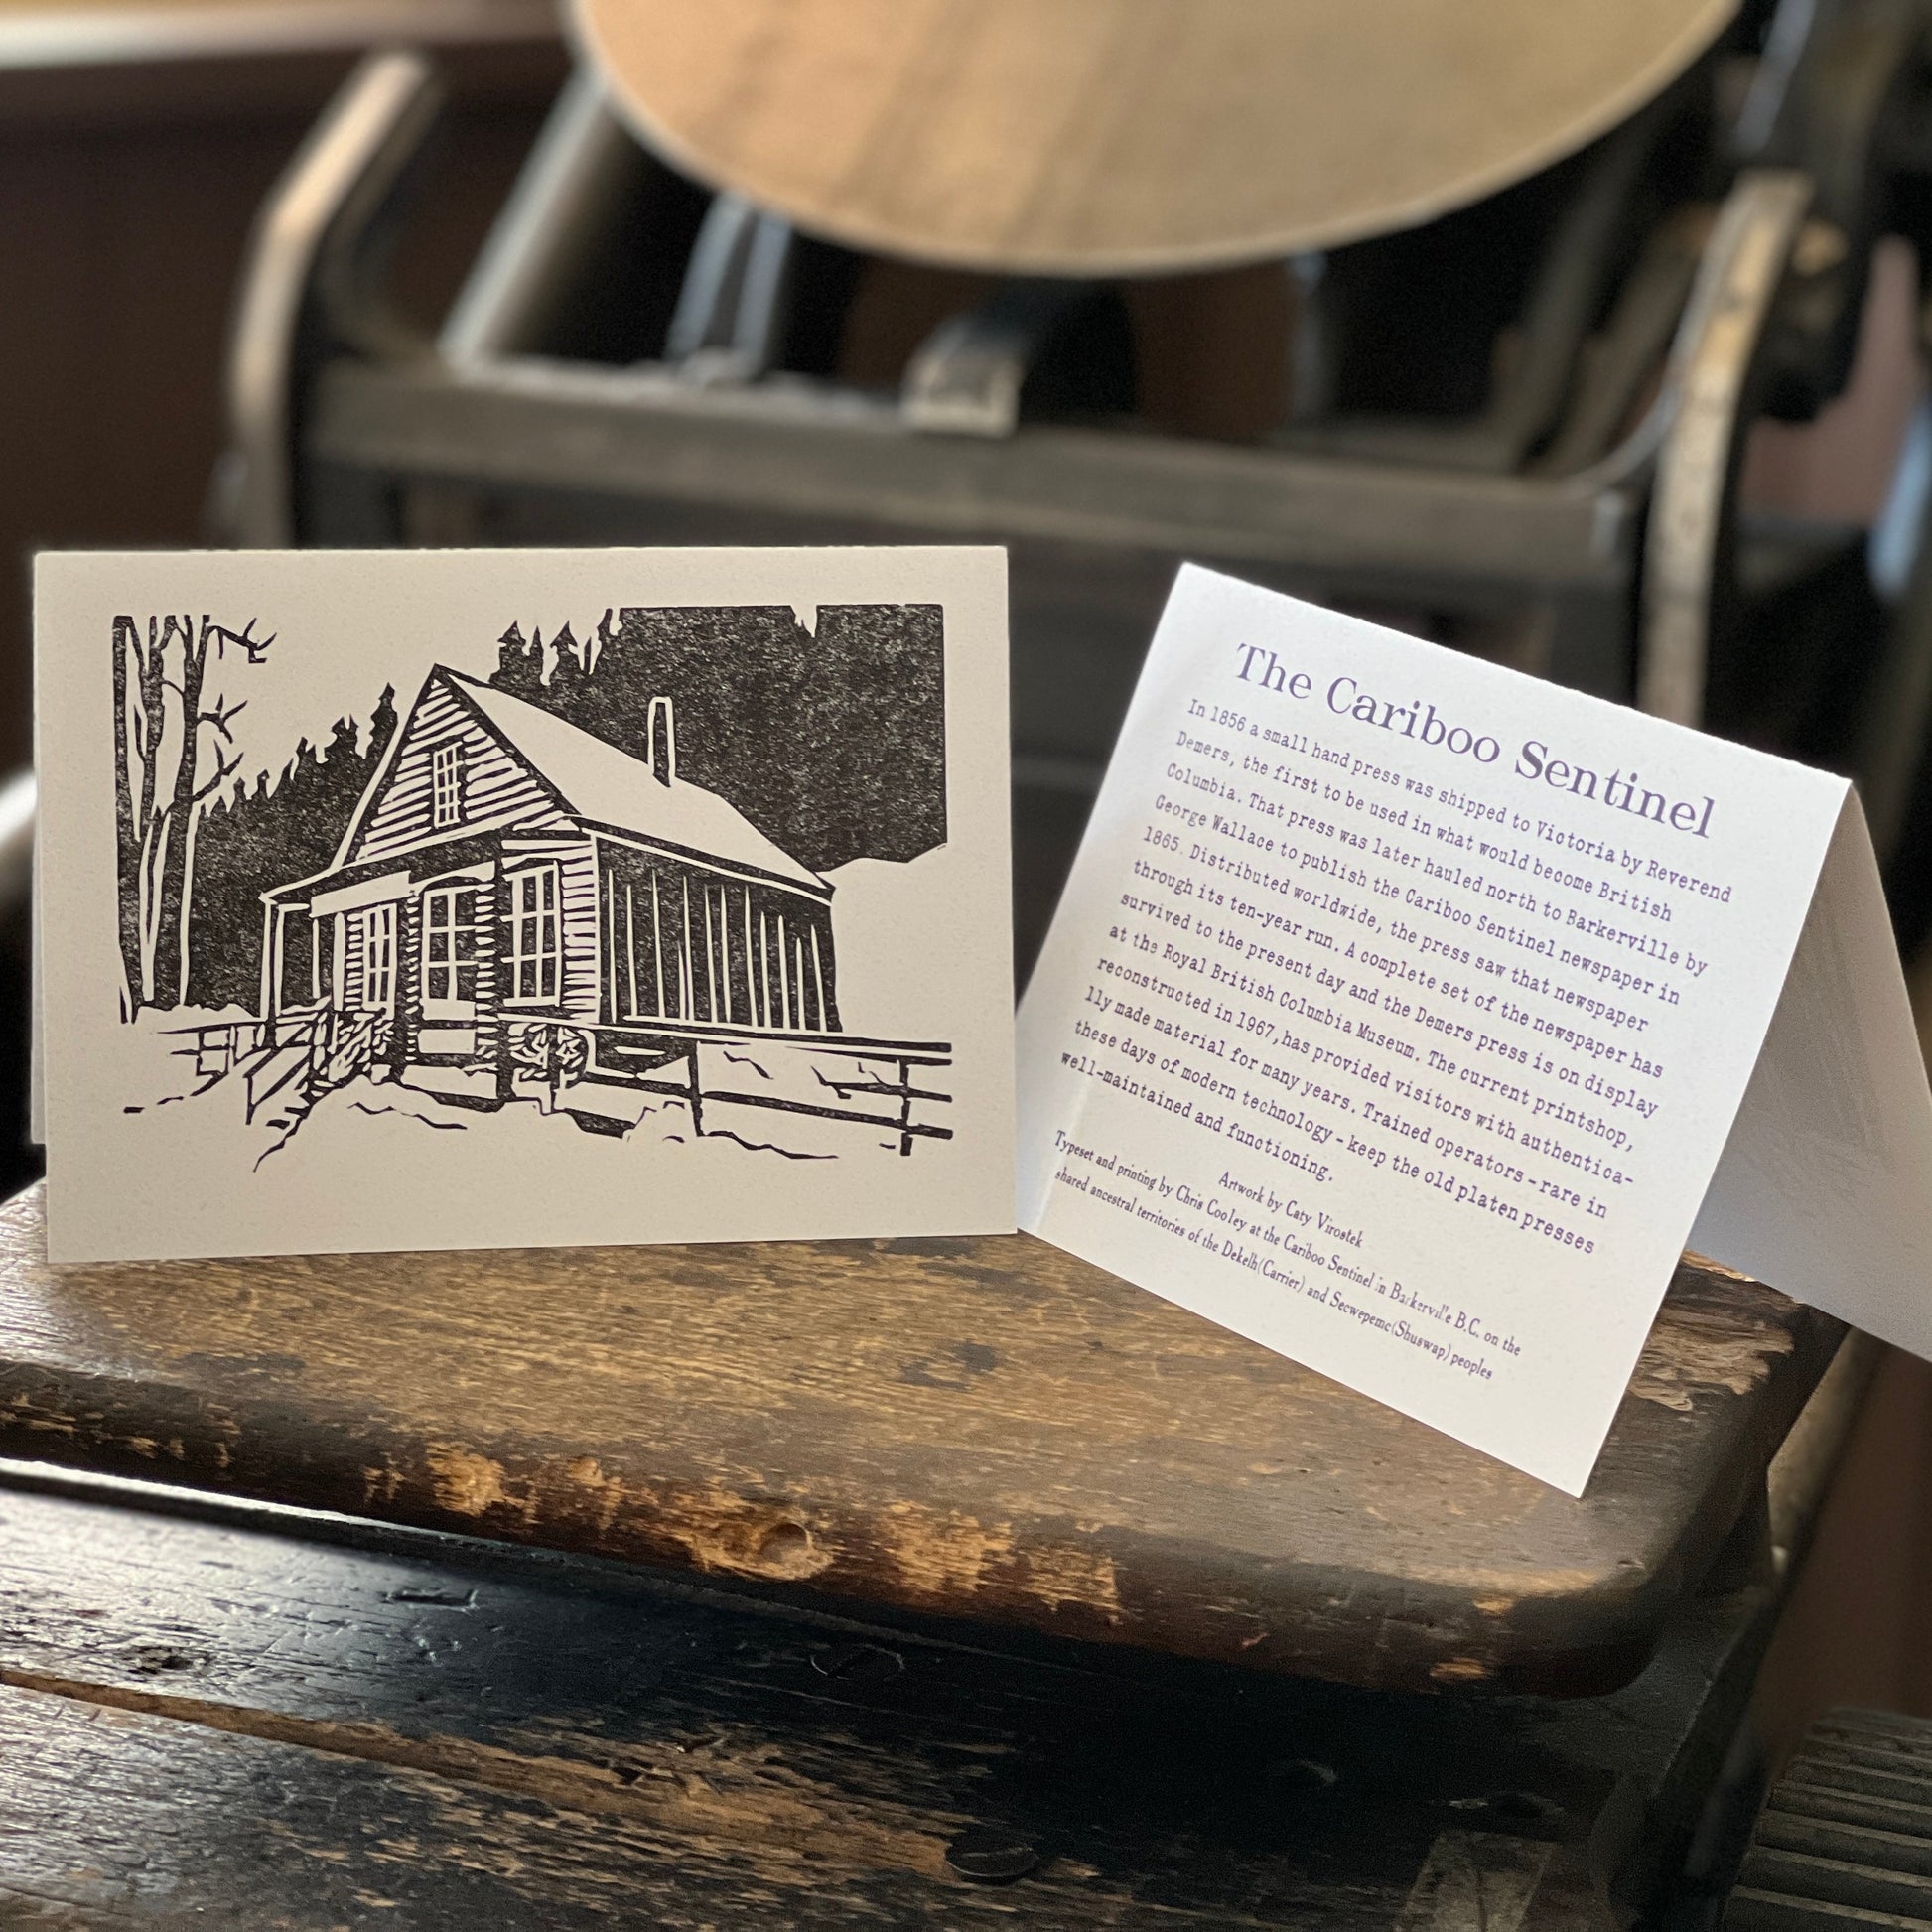 The Cariboo Sentinel
In 1856 a small hand press was shipped to Victoria by Reverend
Demers, the first to be used in what would become British
Columbia. That press was later hauled north to Barkerville by
George Wallace to publish the Cariboo Sentinel newspaper in
1865. Distributed worldwide, the press saw that newspaper
through its ten-year run. A complete set of the newspaper has
survived to the present day and the Demers press is on display
at the Royal British Columbia Museum. The current printshop,
reconstructed in 1967, has provided visitors with authentica-
lly made material for many years. Trained operators - rare in
these days of modern technology - keep the old platen presses
well-maintained and functioning.
Artwork by Caty Virostek
Typeset and printing by Chris Cooley at the Cariboo Sentinel in Barkerville B.C. on the
shared ancestral territories of the Dekelh(Carrier) and Secwepemc(Shuswap) peoples